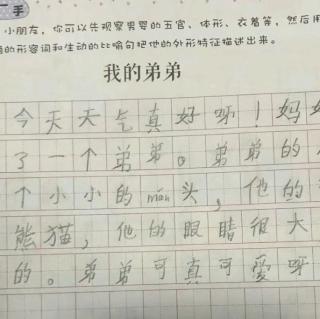 手
小朋友，你可以先观察男婴的五官、体形、衣着等，然后用
的形容词和生动的比喻句把他的外形特征描述出来。
我的弟弟
今天天气真好呀！妈妈
了一个弟弟。弟弟的
个小小的mán头，他的
熊猫，他的眼睛很大
的。弟弟可真可爱呀